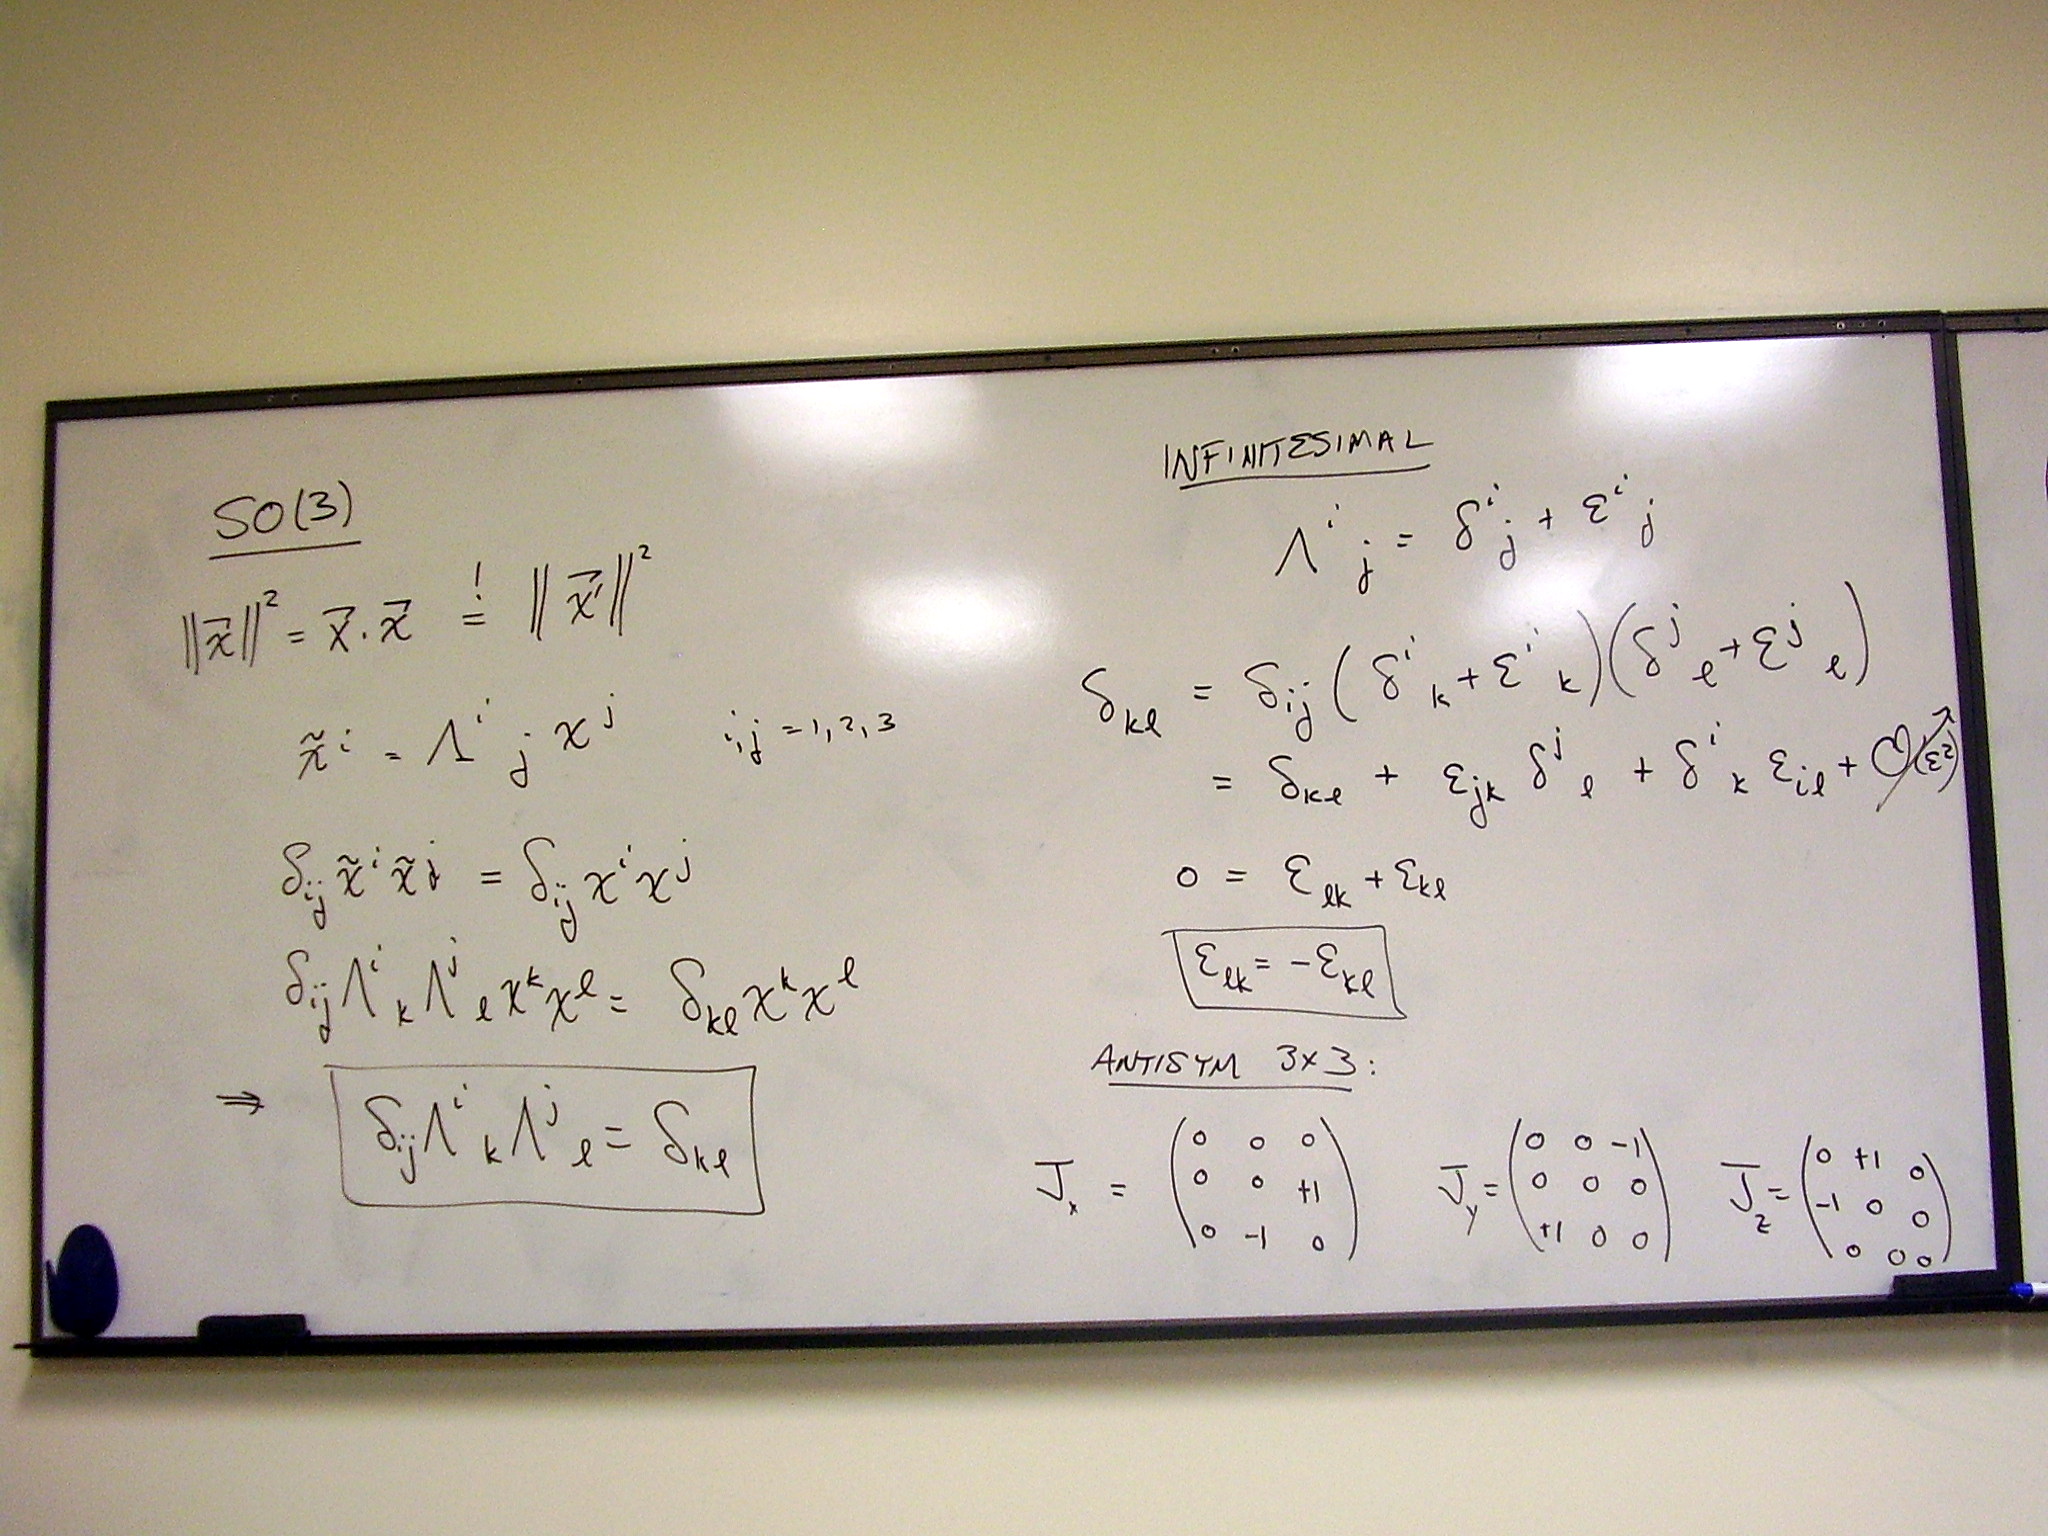 SO(3)
‖x⃗‖² = x⃗·x⃗ =! ‖x⃗'‖²
x̃ⁱ = Λⁱⱼ xʲ    i,j = 1,2,3
δᵢⱼ x̃ⁱ x̃ʲ = δᵢⱼ xⁱ xʲ
δᵢⱼ Λⁱₖ Λʲₗ xᵏ xˡ = δₖₗ xᵏ xˡ
⇒ δᵢⱼ Λⁱₖ Λʲₗ = δₖₗ
INFINITESIMAL
Λⁱⱼ = δⁱⱼ + εⁱⱼ
δₖₗ = δᵢⱼ (δⁱₖ + εⁱₖ)(δʲₗ + εʲₗ)
= δₖₗ + εⱼₖ δʲₗ + δⁱₖ εᵢₗ + O(ε²)
0 = εₗₖ + εₖₗ
εₗₖ = -εₖₗ
ANTISYM 3x3:
Jₓ = (0 0 0
0 0 +1
0 -1 0)
J_y = (0 0 -1
0 0 0
+1 0 0)
J_z = (0 +1 0
-1 0 0
0 0 0)